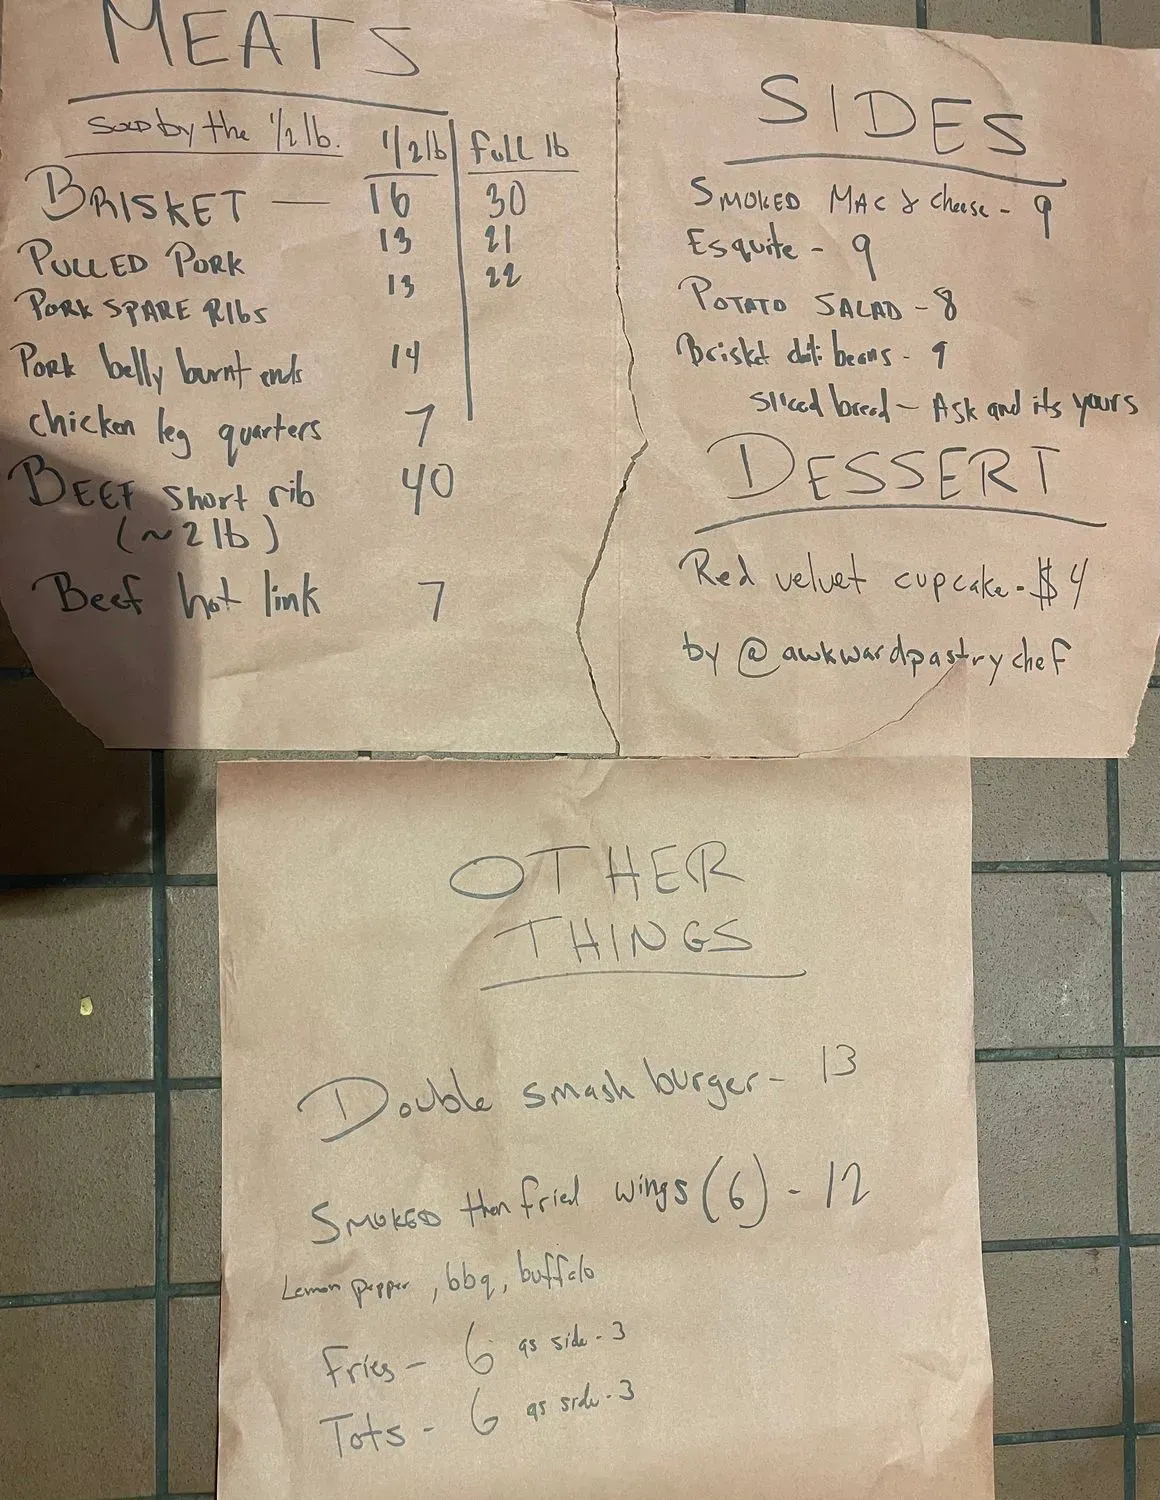 MEATS
Sold by the 1/2 lb. 1/2 lb Full lb
BRISKET — 16 30
PULLED PORK 13 21
PORK SPARE RIBS 13 22
Pork belly burnt ends 14
chicken leg quarters 7
BEEF short rib 40
(~2 lb)
Beef hot link 7
SIDES
SMOKED MAC & Cheese - 9
Esquite - 9
POTATO SALAD - 8
Brisket beans - 9
sliced bread - Ask and its yours
DESSERT
Red velvet cupcake - $4
by @awkwardpastrychef
OTHER
THINGS
Double smash burger - 13
SMOKED then fried wings (6) - 12
Lemon pepper, bbq, buffalo
Fries - 6 as side - 3
Tots - 6 as side - 3